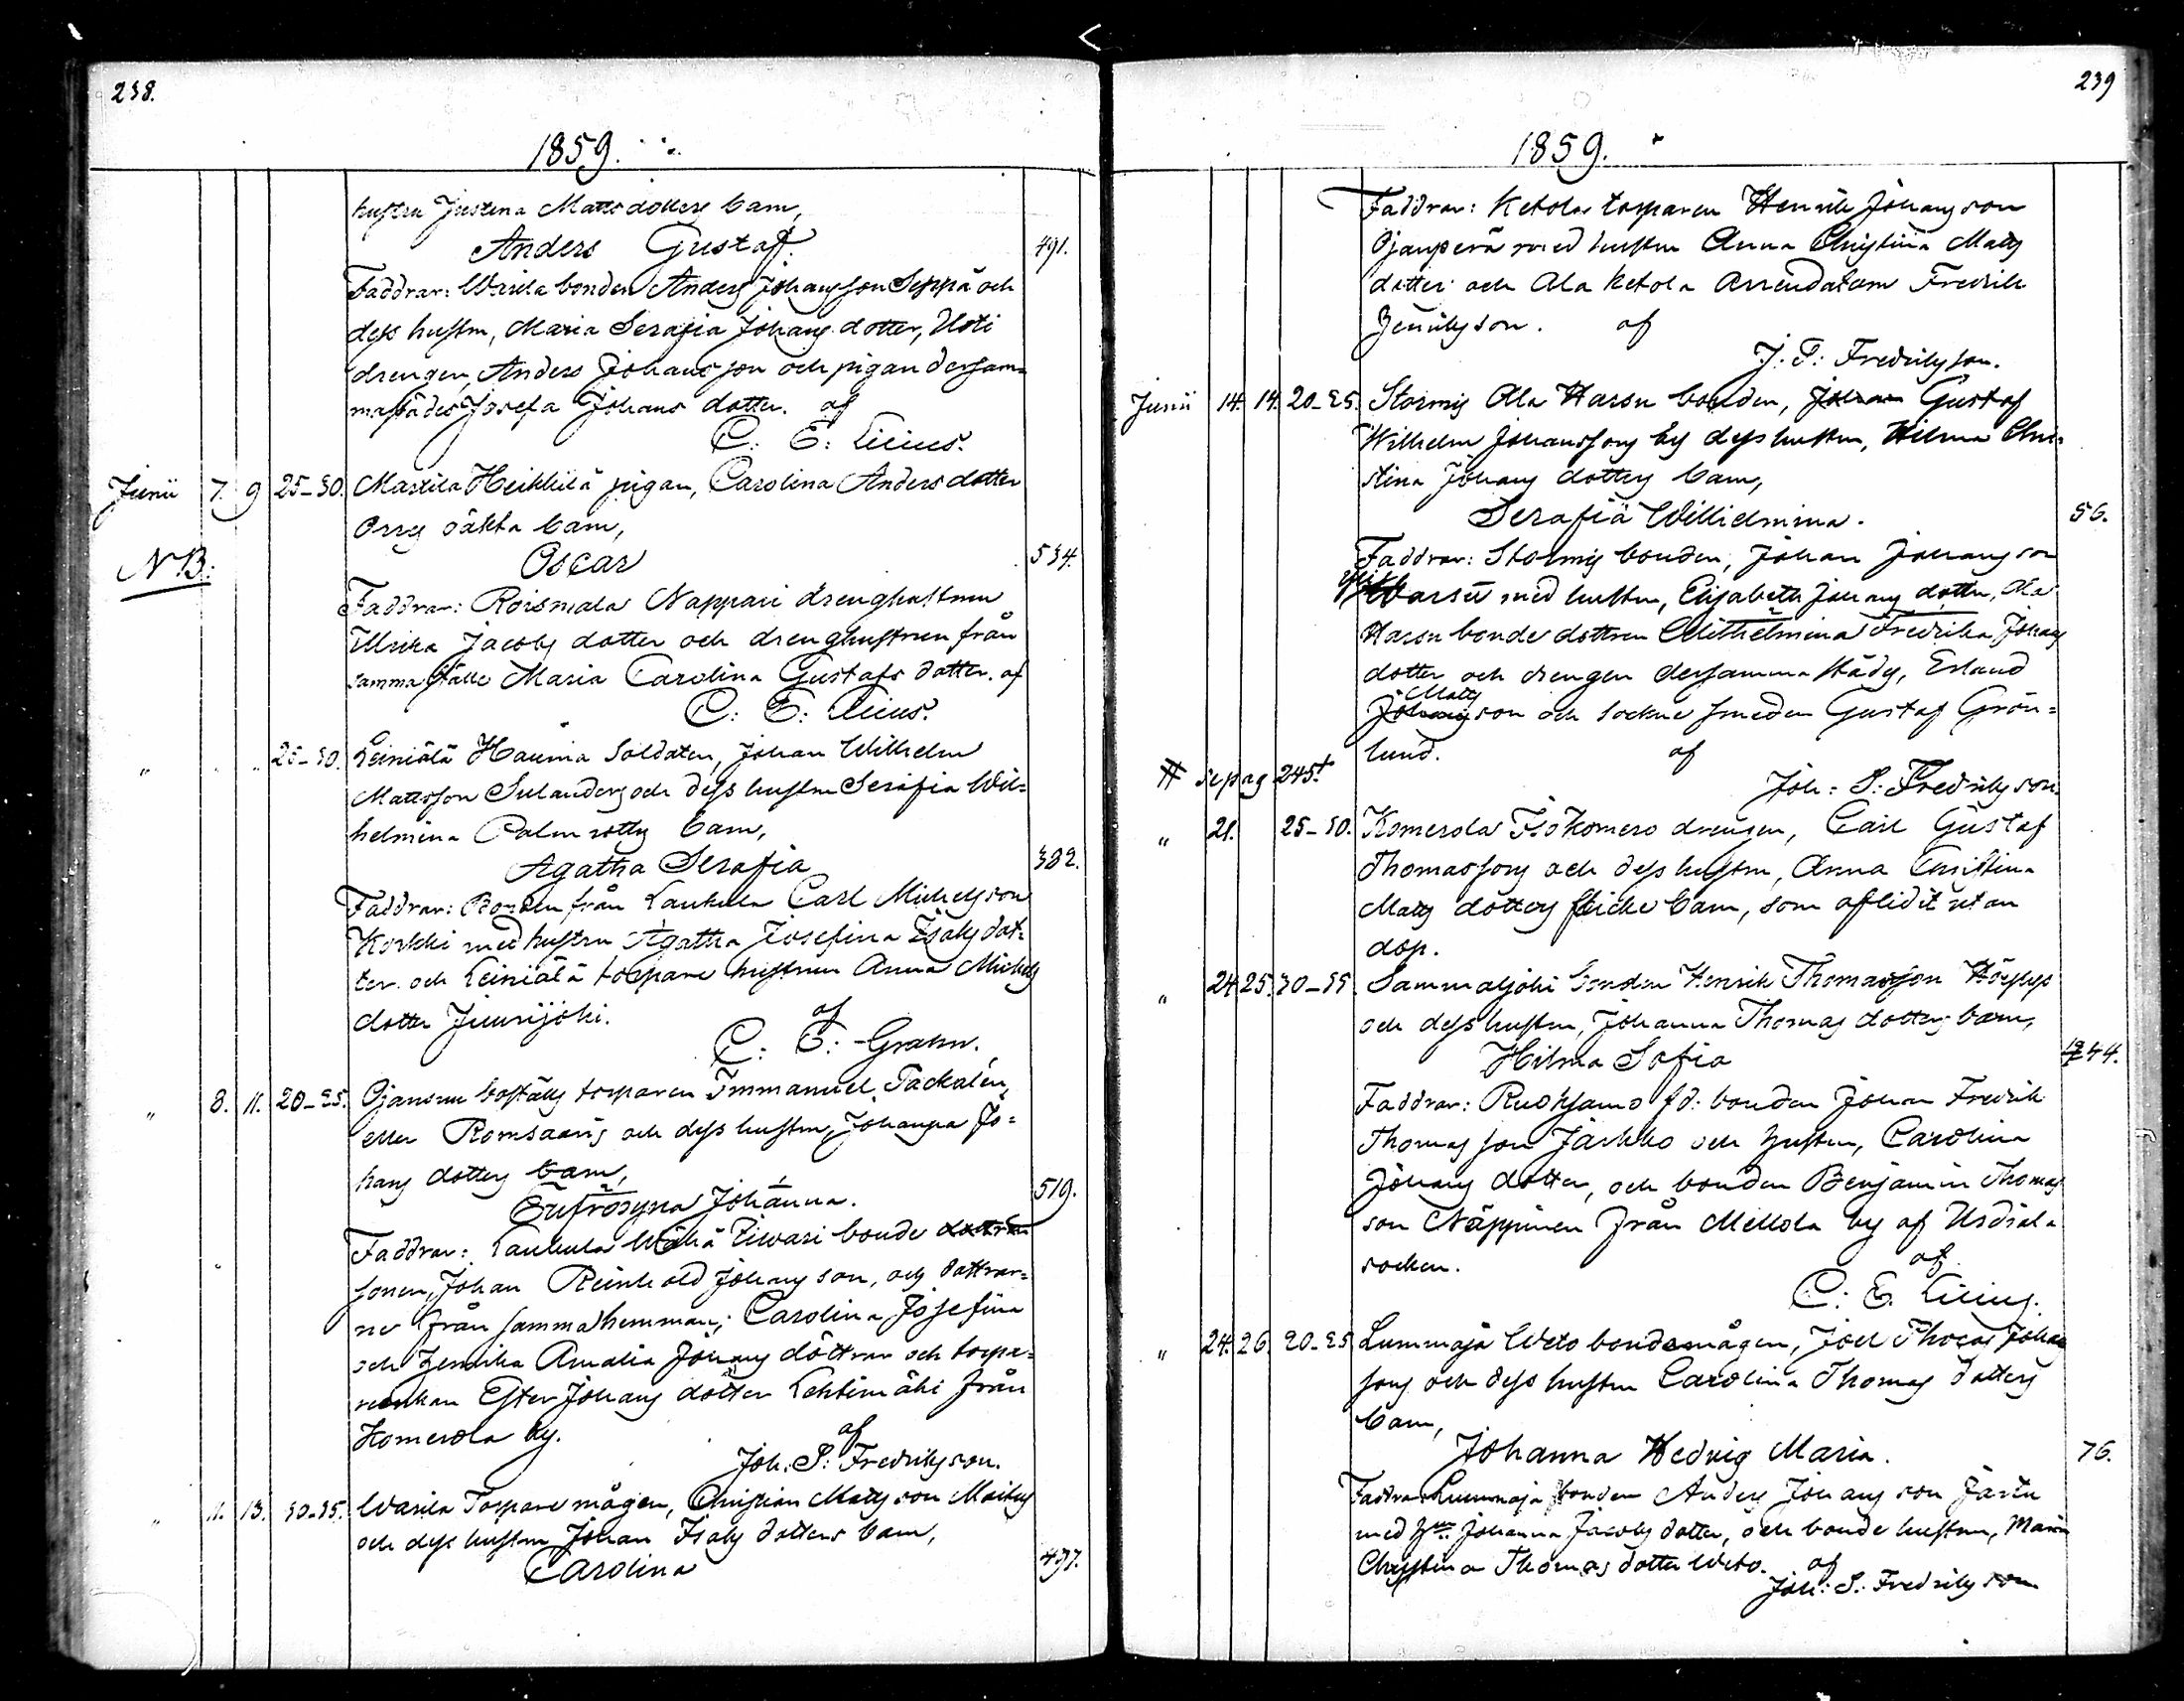 238.
1859.
hustru Justina Mattsdotters barn,
Anders Gustaf. 491.
Faddrar: Warila bonden Anders Johansson Seppä och
dess hustru, Maria Serafia Johans dotter, Uoti
drengen, Anders Johansson och pigan dersam-
mastädes Josefa Johans dotter. af
C: E: Lilius.
Junii 7. 9 25-30. Martila Heikkilä pigan, Carolina Anders dotter
Orrs oäkta barn,
NB: Oscar 534.
Faddrar: Roismala Nappari drenghustrun
Ulrika Jacobs dotter och drenghustrun från
samma ställe Maria Carolina Gustafs dotter. af
C: E: Lilius.
" " " 25-30. Leiniälä Haunia Soldaten, Johan Wilhelm
Mattsson Sulanders och dess hustru Serafia Wil-
helmina Palmrotts barn,
Agatha Serafia 382.
Faddrar: Bonden från Laukula Carl Michelsson
Korkki med hustru Agatha Josefina Isaks dot-
ter och Leiniälä torpare hustrun Anna Michels
dotter Juurijoki. af
C: E: Grahn.
" 8. 11. 20-25. Ojansuu boställs torparen Immanuel Tackalén,
eller Romsaaris och dess hustru, Johanna Jo-
hans dotters barn,
Eufrosyna Johanna. 519.
Faddrar: Laukula Wähä Liwari bonde dottren
sonen, Johan Reinhold Johansson, och dottrar-
ne från samma hemman; Carolina Josefina
och Henrika Amalia Johans döttrar och torpa-
renkan Ester Johans dotter Lehtimäki från
Komerola by. af
Joh: S: Fredriksson.
" 11. 13. 30-35. Warila Torpare mågen, Christian Matsson
och dess hustru Johan Isaks dotters barn,
Carolina 497.
239
1859.
Faddrar: Ketola torparen Henrik Johansson
Ojanperä med hustru Anna Christina Mats
dotter och Ala Ketola Arrendatorn Fredrik
Henriksson. af
J: S: Fredriksson.
Junii 14. 14. 20-25. Stormi Ala Harsu bonden, Johan Gustaf
Wilhelm Johanssons och dess hustru, Wilma Chri-
stina Johans dotters barn,
Serafia Willielmina. 56.
Faddrar: Stormi bonden, Johan Johansson
Yli Harsu med hustru, Elisabeth Johans dotter, Ala
Harsu bonde dottren Wilhelmina Fredrika Johans
dotter och drengen dersammastäds, Erland
Mats
Johansson och sockne smeden Gustaf Grön-
lund. af
# se pag 245.
Joh: S: Fredriksson.
" 21. 25-30. Komerola Isokomero drengen, Carl Gustaf
Thomassons och dess hustru, Anna Christina
Mats dotters flicke barn, som aflidit utan
dop.
" 24. 25. 30-35. Sammaljoki bonden Henrik Thomasson
och dess hustru, Johanna Thomas dotters barn,
Hilma Sofia 1244.
Faddrar: Ruohjamo fd: bonden Johan Fredrik
Thomasson Jarkko och hustru, Carolina
Johans dotter, och bonden Benjamin Thomas
son Näppinen från Mellola by af Urdiala
socken. af
C: E. Lilius.
" 24. 26. 20-25 Lummaja Weto bondemågen, Joel Thomas Johans
sons och dess hustru Carolina Thomas dotters
barn,
Johanna Hedvig Maria. 76.
Faddrar Lummaja bonden Anders Johansson Järtu
med h:u Johanna Jacobs dotter, och bonde hustrun, Maria
Christina Thomas dotter Weto. af
Joh: S: Fredriksson